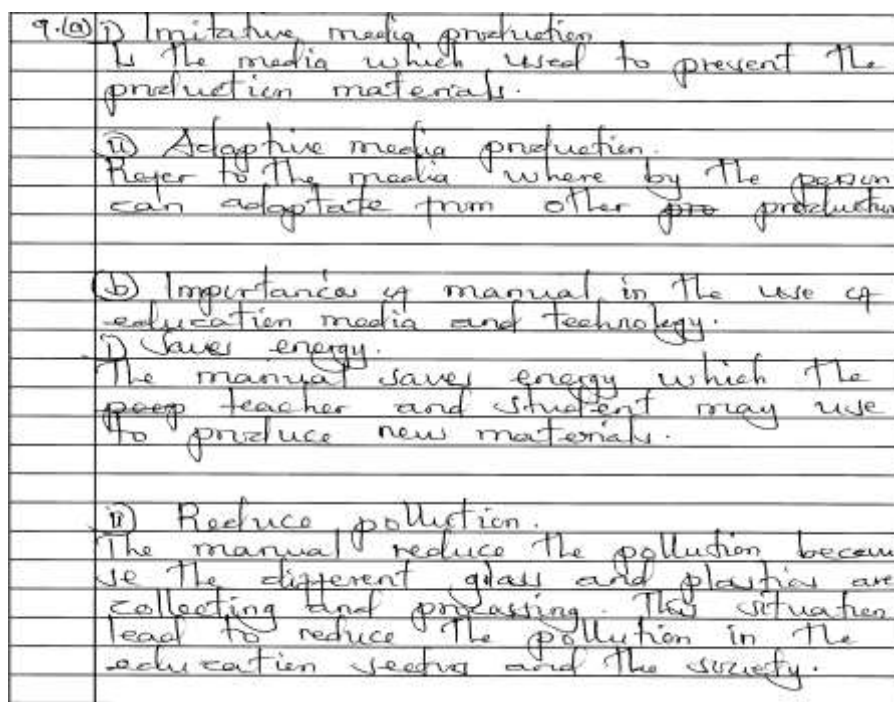 9.(a) i) Imitative media production
Is the media which used to present the
production materials.
ii) Adaptive media production.
Refer to the media where by the person
can adaptate from other pro production
(b) Importances of manual in the use of
education media and technology.
i) Saves energy.
The manual saves energy which the
peop teacher and student may use
to produce new materials.
ii) Reduce pollution.
The manual reduce the pollution becau
se the different glass and plastics are
collecting and processing. This situation
lead to reduce the pollution in the
education sector and the society.